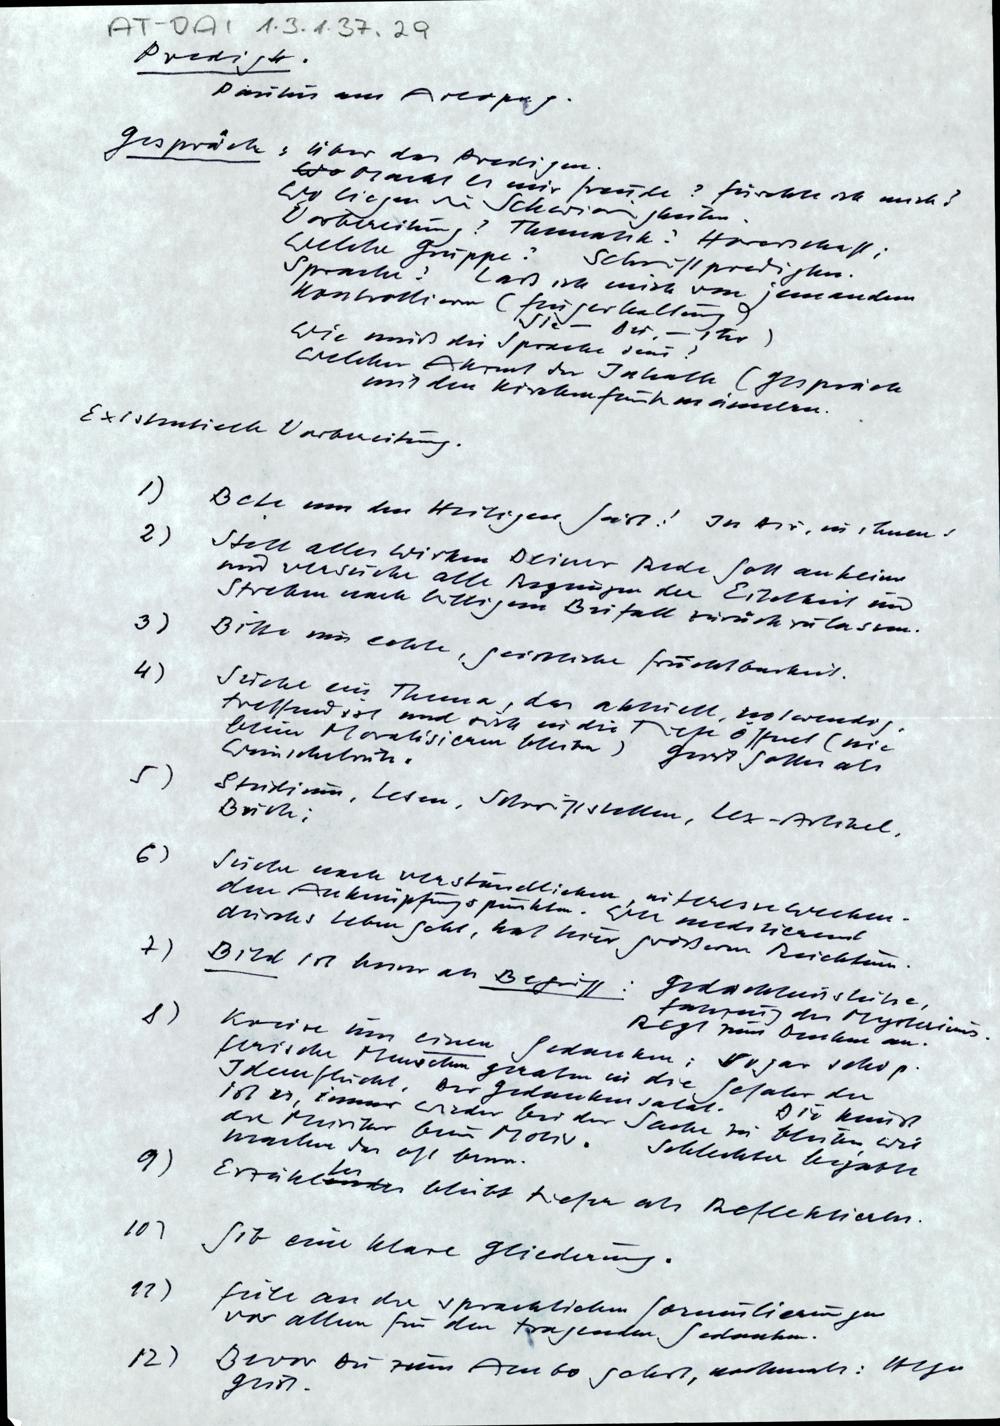 AT-DAI 1.3.1.37.29
Predigt.
Paulus am Areopag.
Gespräch: über das Predigen.
Macht es mir Freude? Fürchte ich mich?
Wo liegen die Schwierigkeiten.
Vorbereitung? Thematik? Hörerschaft;
Welche Gruppe? Schriftpredigten.
Sprache? Laß ich mich von jemandem
kontrollieren (Fingerhaltung)
Sie – Du, – Ihr)
Wie muß die Sprache sein?
Welcher Akzent der Inhalte (Gespräch
mit den Kirchenfunkmännern.
Existentielle Vorbereitung.
1) Bete um den Heiligen Geist! In Dir, in Ihnen!
2) Stell alles Wirken Deiner Rede Gott anheim
und versuche alle Regungen der Eitelkeit und
Streben nach billigem Beifall zurückzulassen.
3) Bitte um echte, geistliche Fruchtbarkeit.
4) Suche ein Thema, das aktuell, notwendig,
treffend ist und sich in die Tiefe öffnet (nie
beim Moralisieren bleiben) Geist Gottes als
Wünschelrute.
5) Studium, Lesen, Schriftstellen, Lex-Artikel,
Buch;
6) Suche nach verständlichen, interesseweckenden
Anknüpfungspunkten. Wer meditierend
durchs Leben geht, hat hier größeren Reichtum.
7) Bild ist besser als Begriff: Gedächtnisstütze,
Fahrzeug des Mysteriums.
Regt zum Denken an.
8) Kreise um einen Gedanken; sogar schöp-
ferische Menschen geraten in die Gefahr der
Ideenflucht. Der Gedankensalat. Die Kunst
ist es, immer wieder bei der Sache zu bleiben wie
der Musiker beim Motiv. Schlechter begabte
machen das oft besser.
9) Erzähltes bleibt tiefer als Reflektiertes.
10) Gib eine klare Gliederung.
11) Feile an den sprachlichen Formulierungen
vor allem für den tragenden Gedanken.
12) Bevor Du zum Ambo gehst, nochmals: Heiliger
Geist.